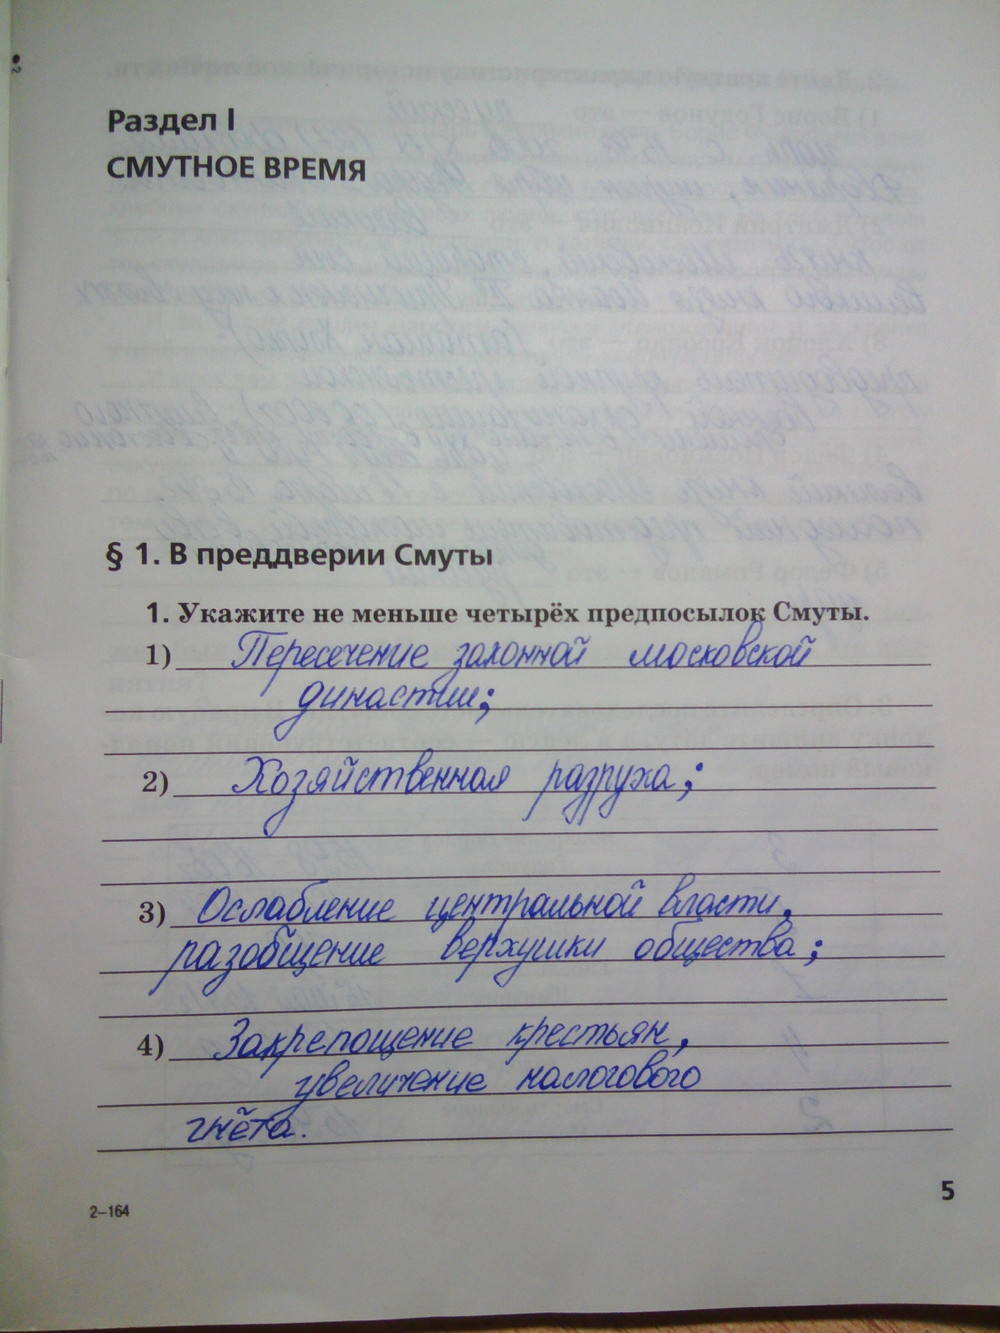 Раздел I
СМУТНОЕ ВРЕМЯ
§ 1. В преддверии Смуты
1. Укажите не меньше четырёх предпосылок Смуты.
1) Пересечение законной московской
династии;
2) Хозяйственная разруха;
3) Ослабление центральной власти,
разобщение верхушки общества;
4) Закрепощение крестьян,
увеличение налогового
гнёта.
2–164
5